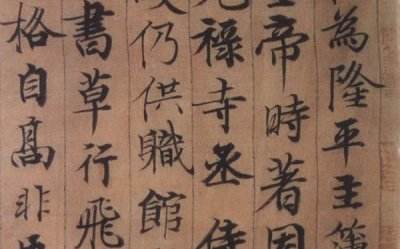 為隆平主簿
帝時著
祿寺丞侍
仍供職館
書草行飛
格自高非